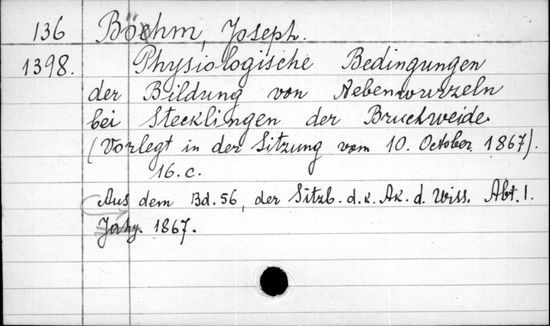 136 Böehm, Joseph.
1398. Physiologische Bedingungen
der Bildung von Nebenwurzeln
bei Stecklingen der Bruchweide.
(Vorlegt in der Sitzung vom 10. October 1867).
16.c.
Aus dem Bd. 56, der Sitzb. d. k. Ak. d. Wiss. Abt. I.
Jahg. 1867.